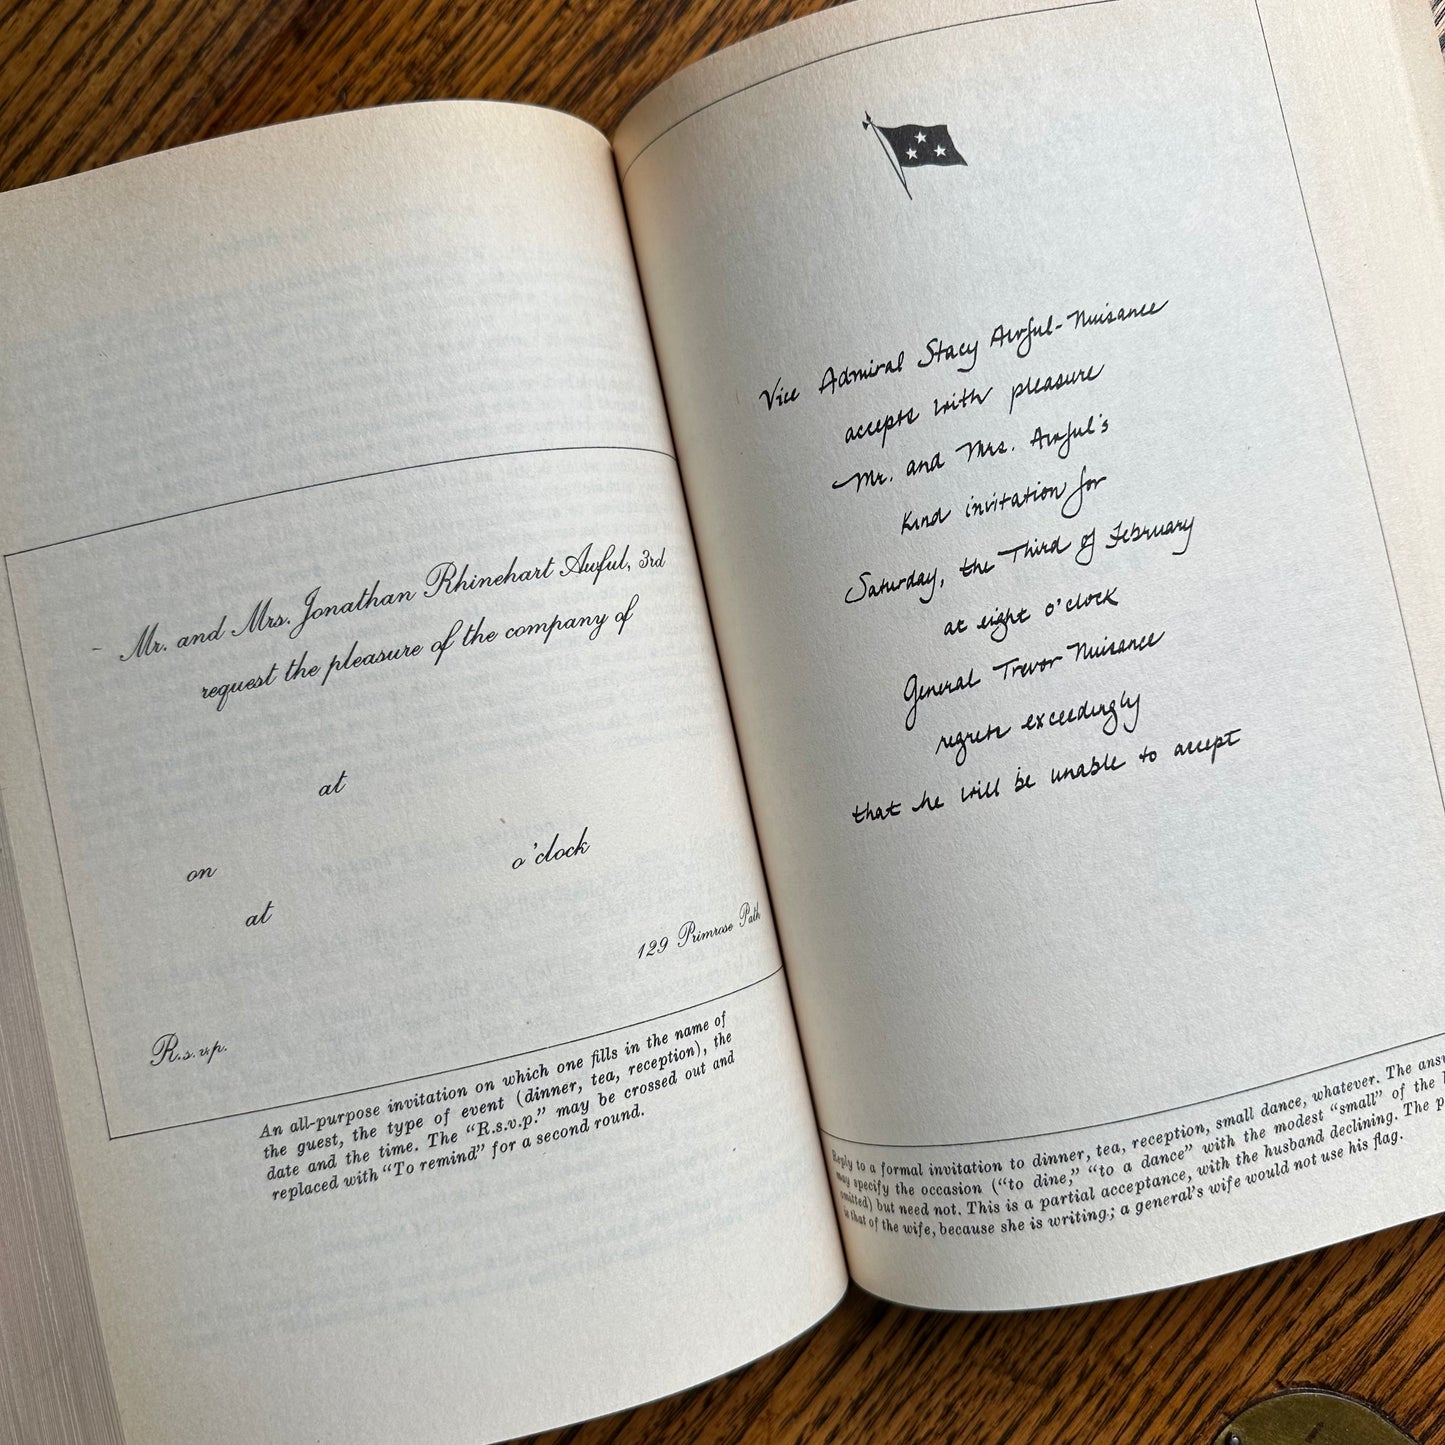 Mr. and Mrs. Jonathan Rhinehart Awful, 3rd
request the pleasure of the company of
at
on o'clock
at
129 Primrose Path
R.s.v.p.
An all-purpose invitation on which one fills in the name of
the guest, the type of event (dinner, tea, reception), the
date and the time. The “R.s.v.p.” may be crossed out and
replaced with “To remind” for a second round.
Vice Admiral Stacy Awful-Nuisance
accepts with pleasure
Mr. and Mrs. Awful's
kind invitation for
Saturday, the Third of February
at eight o'clock
General Trevor Nuisance
regrets exceedingly
that he will be unable to accept
Reply to a formal invitation to dinner, tea, reception, small dance, whatever. The
may specify the occasion (“to dine,” “to a dance” with the modest “small” of the
omitted) but need not. This is a partial acceptance, with the husband declining. The
is that of the wife, because she is writing; a general's wife would not use his flag.